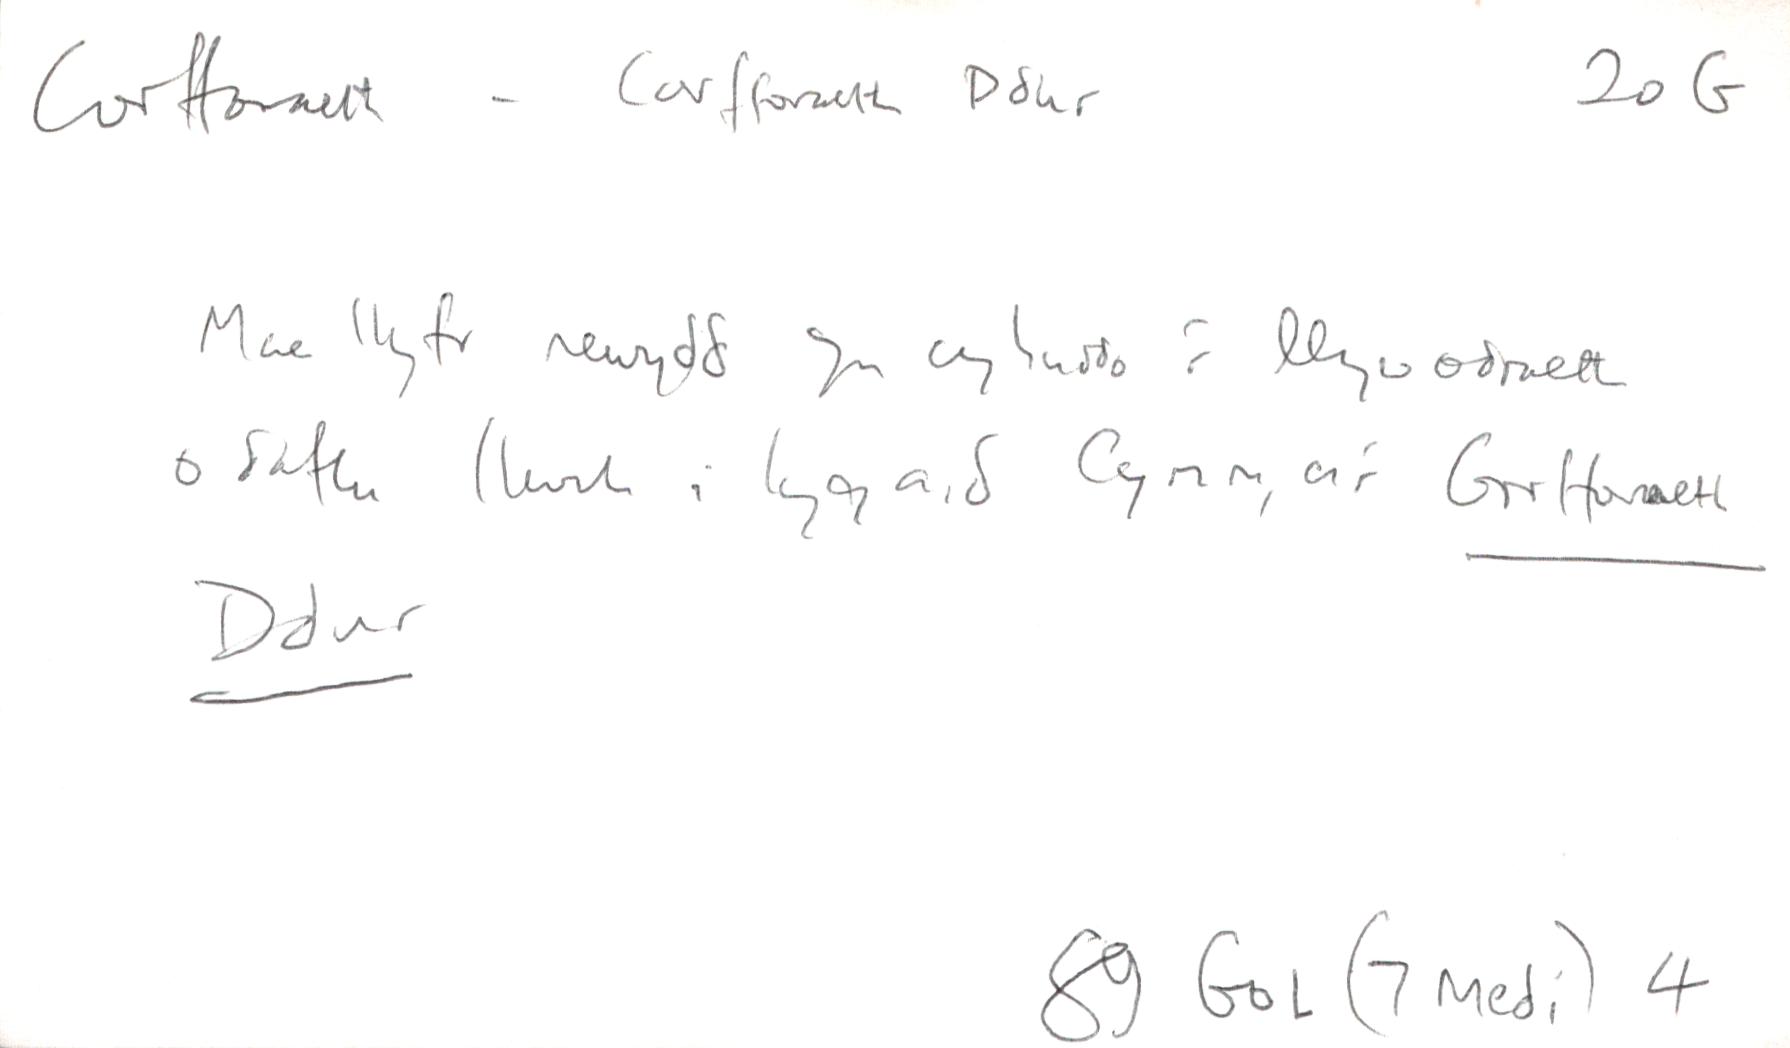 Corfforaeth - Corfforaeth Ddur 20 G
Mae llyfr newydd yn cyhuddo'r llywodraeth
o daflu llwch i lygaid Cymru, a'r Gorfforaeth
Ddur
89 GOL (7 Medi) 4